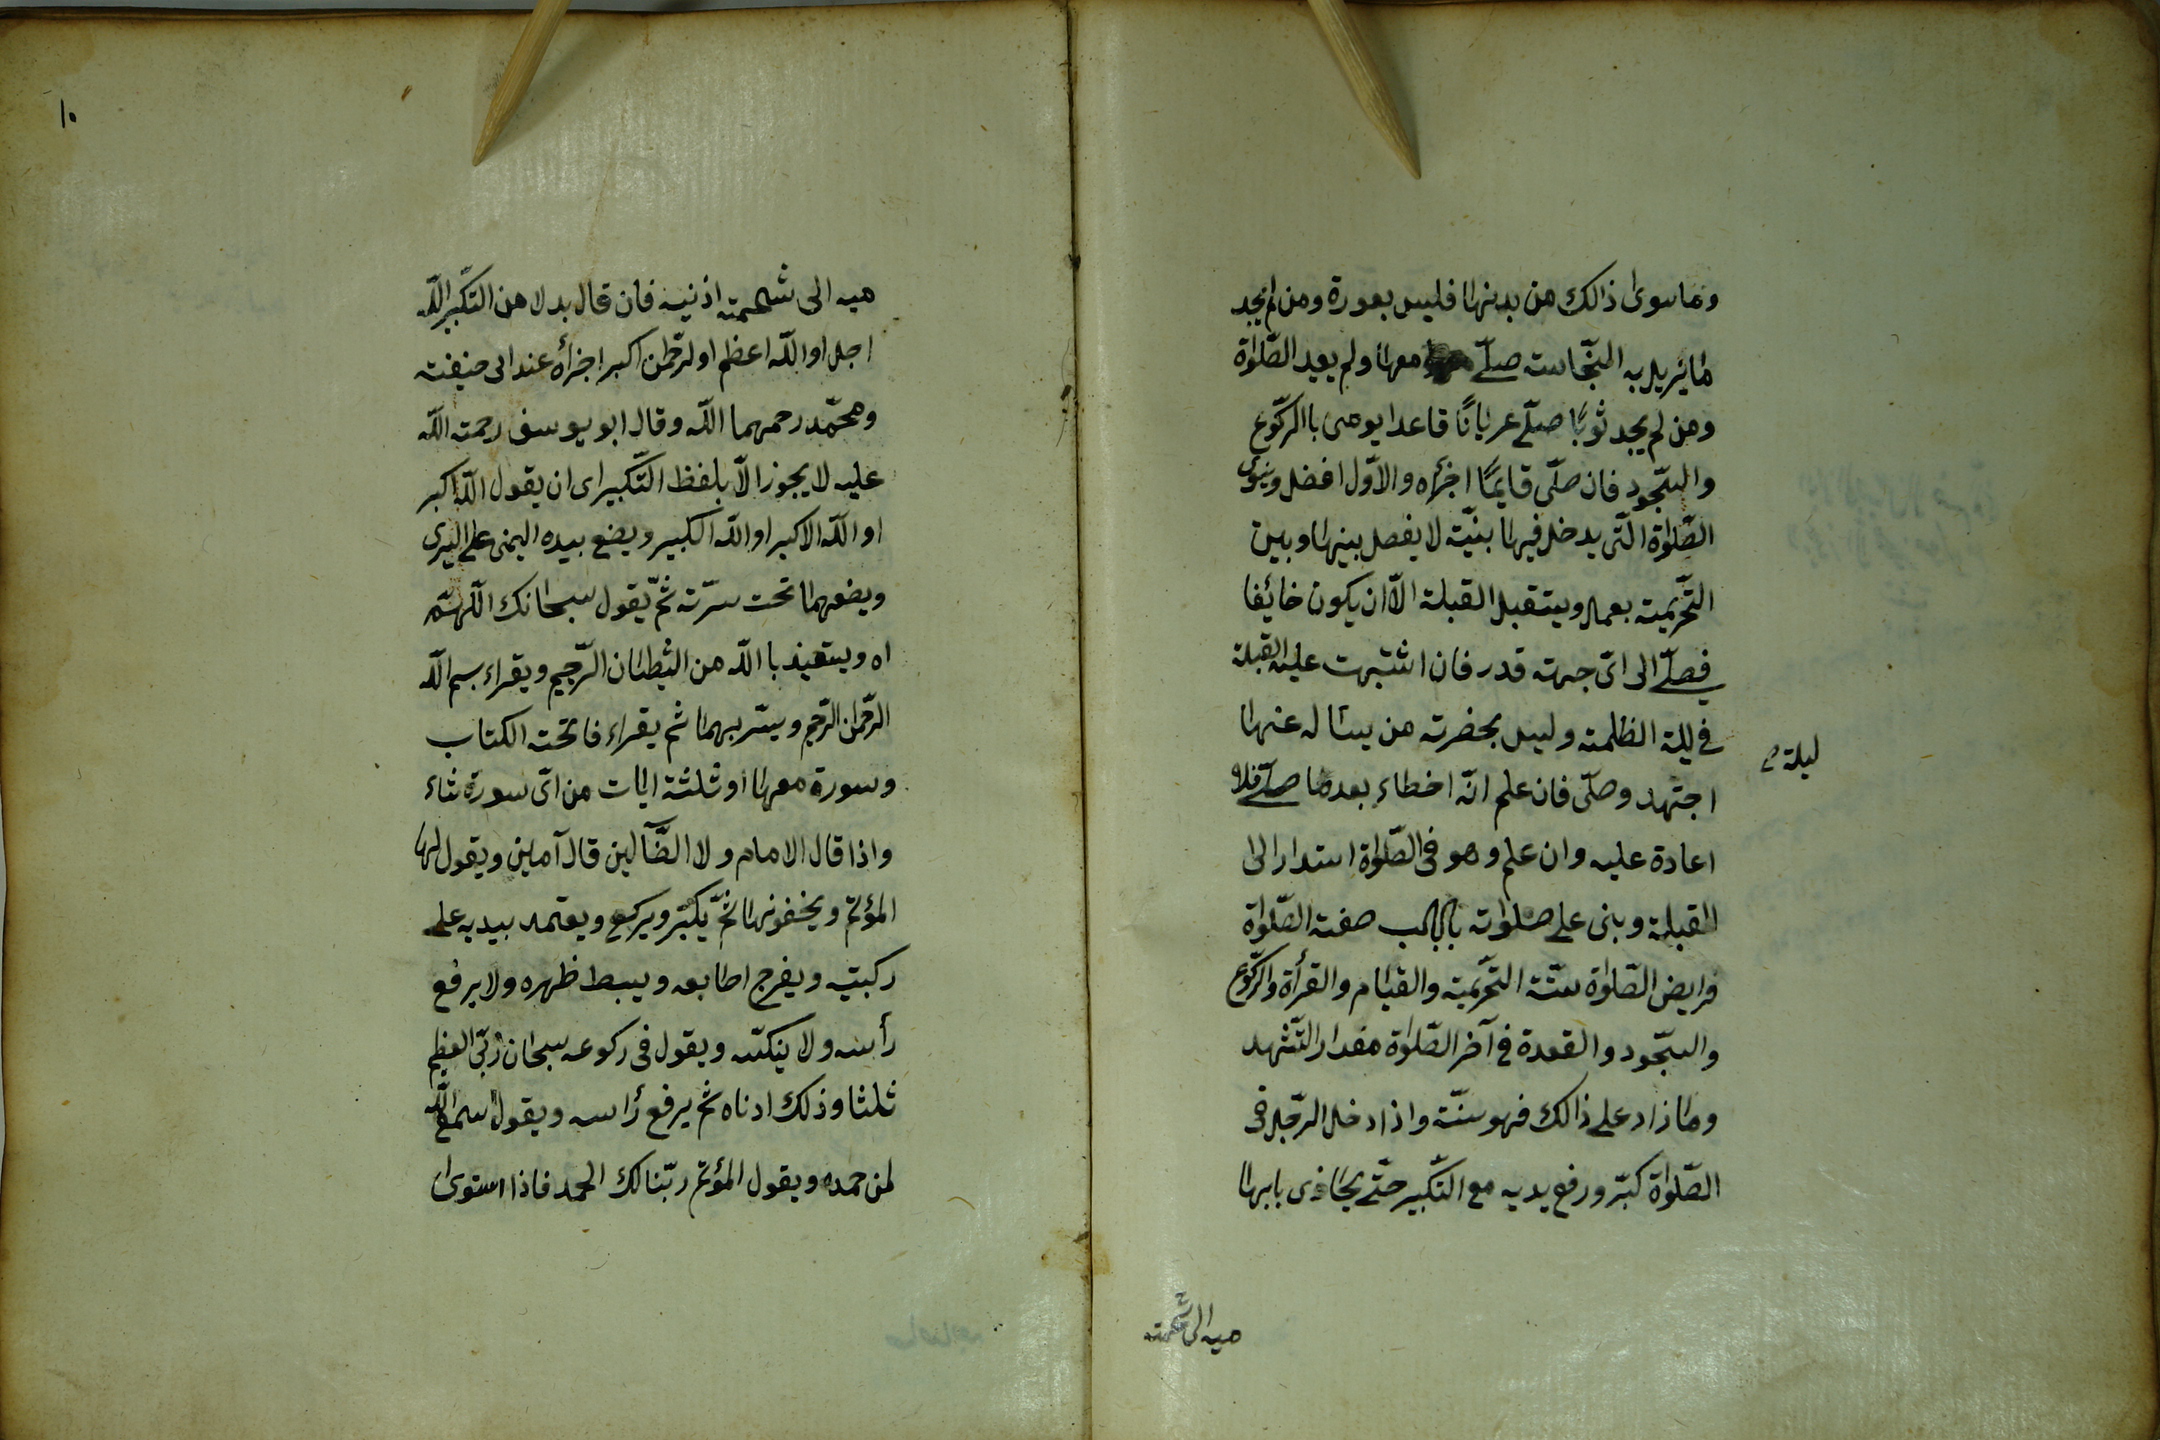 وما سوى ذالك من بدنها فليس بعورة ومن لم يجد
ما يزيل به النّجاسته صلّى معها ولم يعيد الصّلوٰة
ومن لم يجد ثوبًا صلّى عريانًا قاعدا يومى باالركّوع
والسّجود فان صلّى قايمًا اجزاه والاوّل افضل وينوى
الصّلوٰة الّتى يدخل فيها بنيّة لا يفصل بينها وبين
التّحريمته بعمال ويستقبل القبلة الّا ان يكون خائفا
فيصلّے الى اىّ جهته قدر فان اشتبهت عليه القبلة
فى ليلة الظلمته وليس بحضرته من يساله عنها
ليلة
اجتهد وصلّى فان علم انّه اخطاء بعد ما صلّے فلا
اعادة عليه وان علم وهو فى الصّلوٰة استدار الى
القبلة وبنى على صلوٰته باب صفته الصّلوٰة
فرايض الصّلوٰة ستّة التّحريمة والقيام والقرأة والركّوع
والسّجود والقعدة فى آخر الصّلوٰة مقدار التّشهد
وما زاد على ذالك فهو سنّة واذا دخل الرّجل فى
الصّلوٰة كبّر ورفع يديه مع التّكبير حتّى يحاذى بابها
ميه الى شحمته
١٠
ميه الى شحمته اذنيه فان قال بدلا من التّكبير اللّه
اجل او اللّه اعظم او لرّحمن اكبر اجزأه عند ابى حنيفته
ومحمّد رحمهما اللّه وقال ابو يوسف رحمته اللّه
عليه لا يجوز الّا بلفظ التّكبير اى ان يقول اللّه اكبر
او اللّه الاكبر او اللّه الكبير ويضع بيده اليمنى على اليرى
ويضعهما تحت سرّته ثمّ يقول سبحانك اللّهمّ
اه ويستعيذ باللّه من الشيطان الرّجيم ويقراء بسم اللّه
الرّحمن الرّحيم ويسّر بهما ثم يقراء فاتحته الكتاب
وسورة معها او ثلثة ايات من اىّ سورة شاء
واذا قال الامام ولا الضّآلين قال آمين ويقول لها
المؤتم ويخفونها ثمّ يكبّر ويركع ويعتمد بيديه على
ركبتيه ويفرج اصابعه ويبسط ظهره ولا يرفع
رأسه ولا ينكسّه ويقول فى ركوعه سبحان ربّى العظيم
ثلثا وذلك ادناه ثم يرفع رأسه ويقول سمع اللّه
لمن حمده ويقول المؤتم ربّنا لك الحمد فاذا استوى